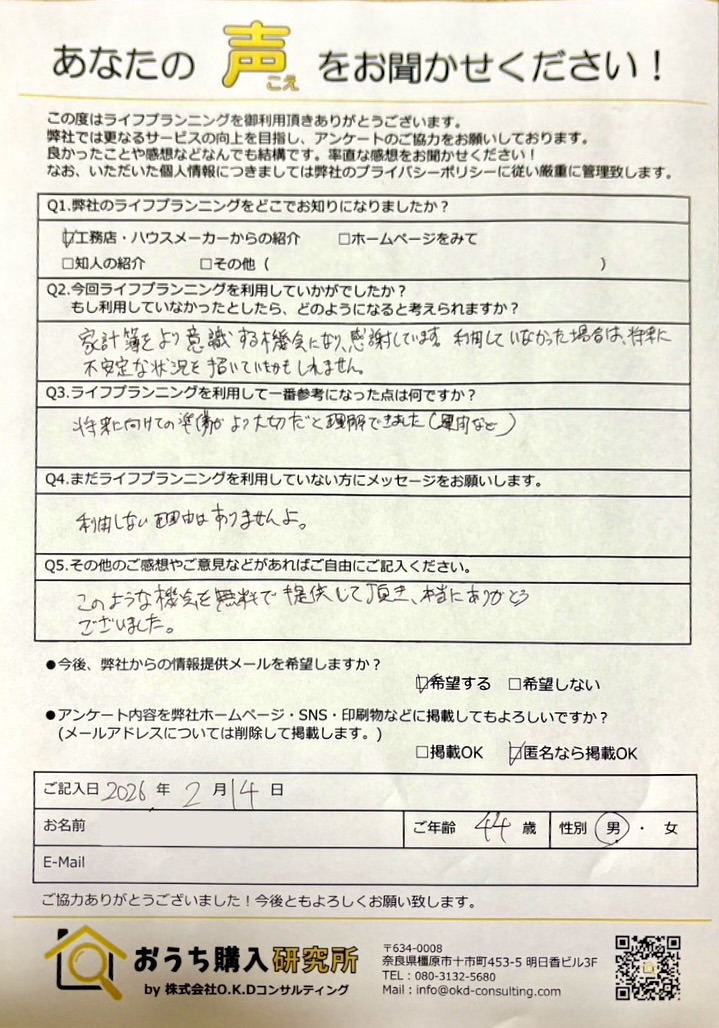 あなたの 声 をお聞かせください！
こえ
この度はライフプランニングを御利用頂きありがとうございます。
弊社では更なるサービスの向上を目指し、アンケートのご協力をお願いしております。
良かったことや感想などなんでも結構です。率直な感想をお聞かせください！
なお、いただいた個人情報につきましては弊社のプライバシーポリシーに従い厳重に管理致します。
Q1.弊社のライフプランニングをどこでお知りになりましたか？
☑工務店・ハウスメーカーからの紹介 □ホームページをみて
□知人の紹介 □その他（ ）
Q2.今回ライフプランニングを利用していかがでしたか？
もし利用していなかったとしたら、どのようになると考えられますか？
家計簿をより意識する機会になり、感謝しています。利用していなかった場合は、将来に
不安定な状況を招いていたかもしれません。
Q3.ライフプランニングを利用して一番参考になった点は何ですか？
将来に向けての準備がより大切だと理解できました（運用など）
Q4.まだライフプランニングを利用していない方にメッセージをお願いします。
利用しない理由はありませんよ。
Q5.その他のご感想やご意見などがあればご自由にご記入ください。
このような機会を無料で提供して頂き、本当にありがとう
ございました。
●今後、弊社からの情報提供メールを希望しますか？
☑希望する □希望しない
●アンケート内容を弊社ホームページ・SNS・印刷物などに掲載してもよろしいですか？
(メールアドレスについては削除して掲載します。)
□掲載OK ☑匿名なら掲載OK
ご記入日 2026 年 2 月 14 日
お名前 ご年齢 44 歳 性別 男 ・ 女
E-Mail
ご協力ありがとうございました！今後ともよろしくお願い致します。
おうち購入研究所
by 株式会社O.K.Dコンサルティング
〒634-0008
奈良県橿原市十市町453-5 明日香ビル3F
TEL：080-3132-5680
Mail：info@okd-consulting.com